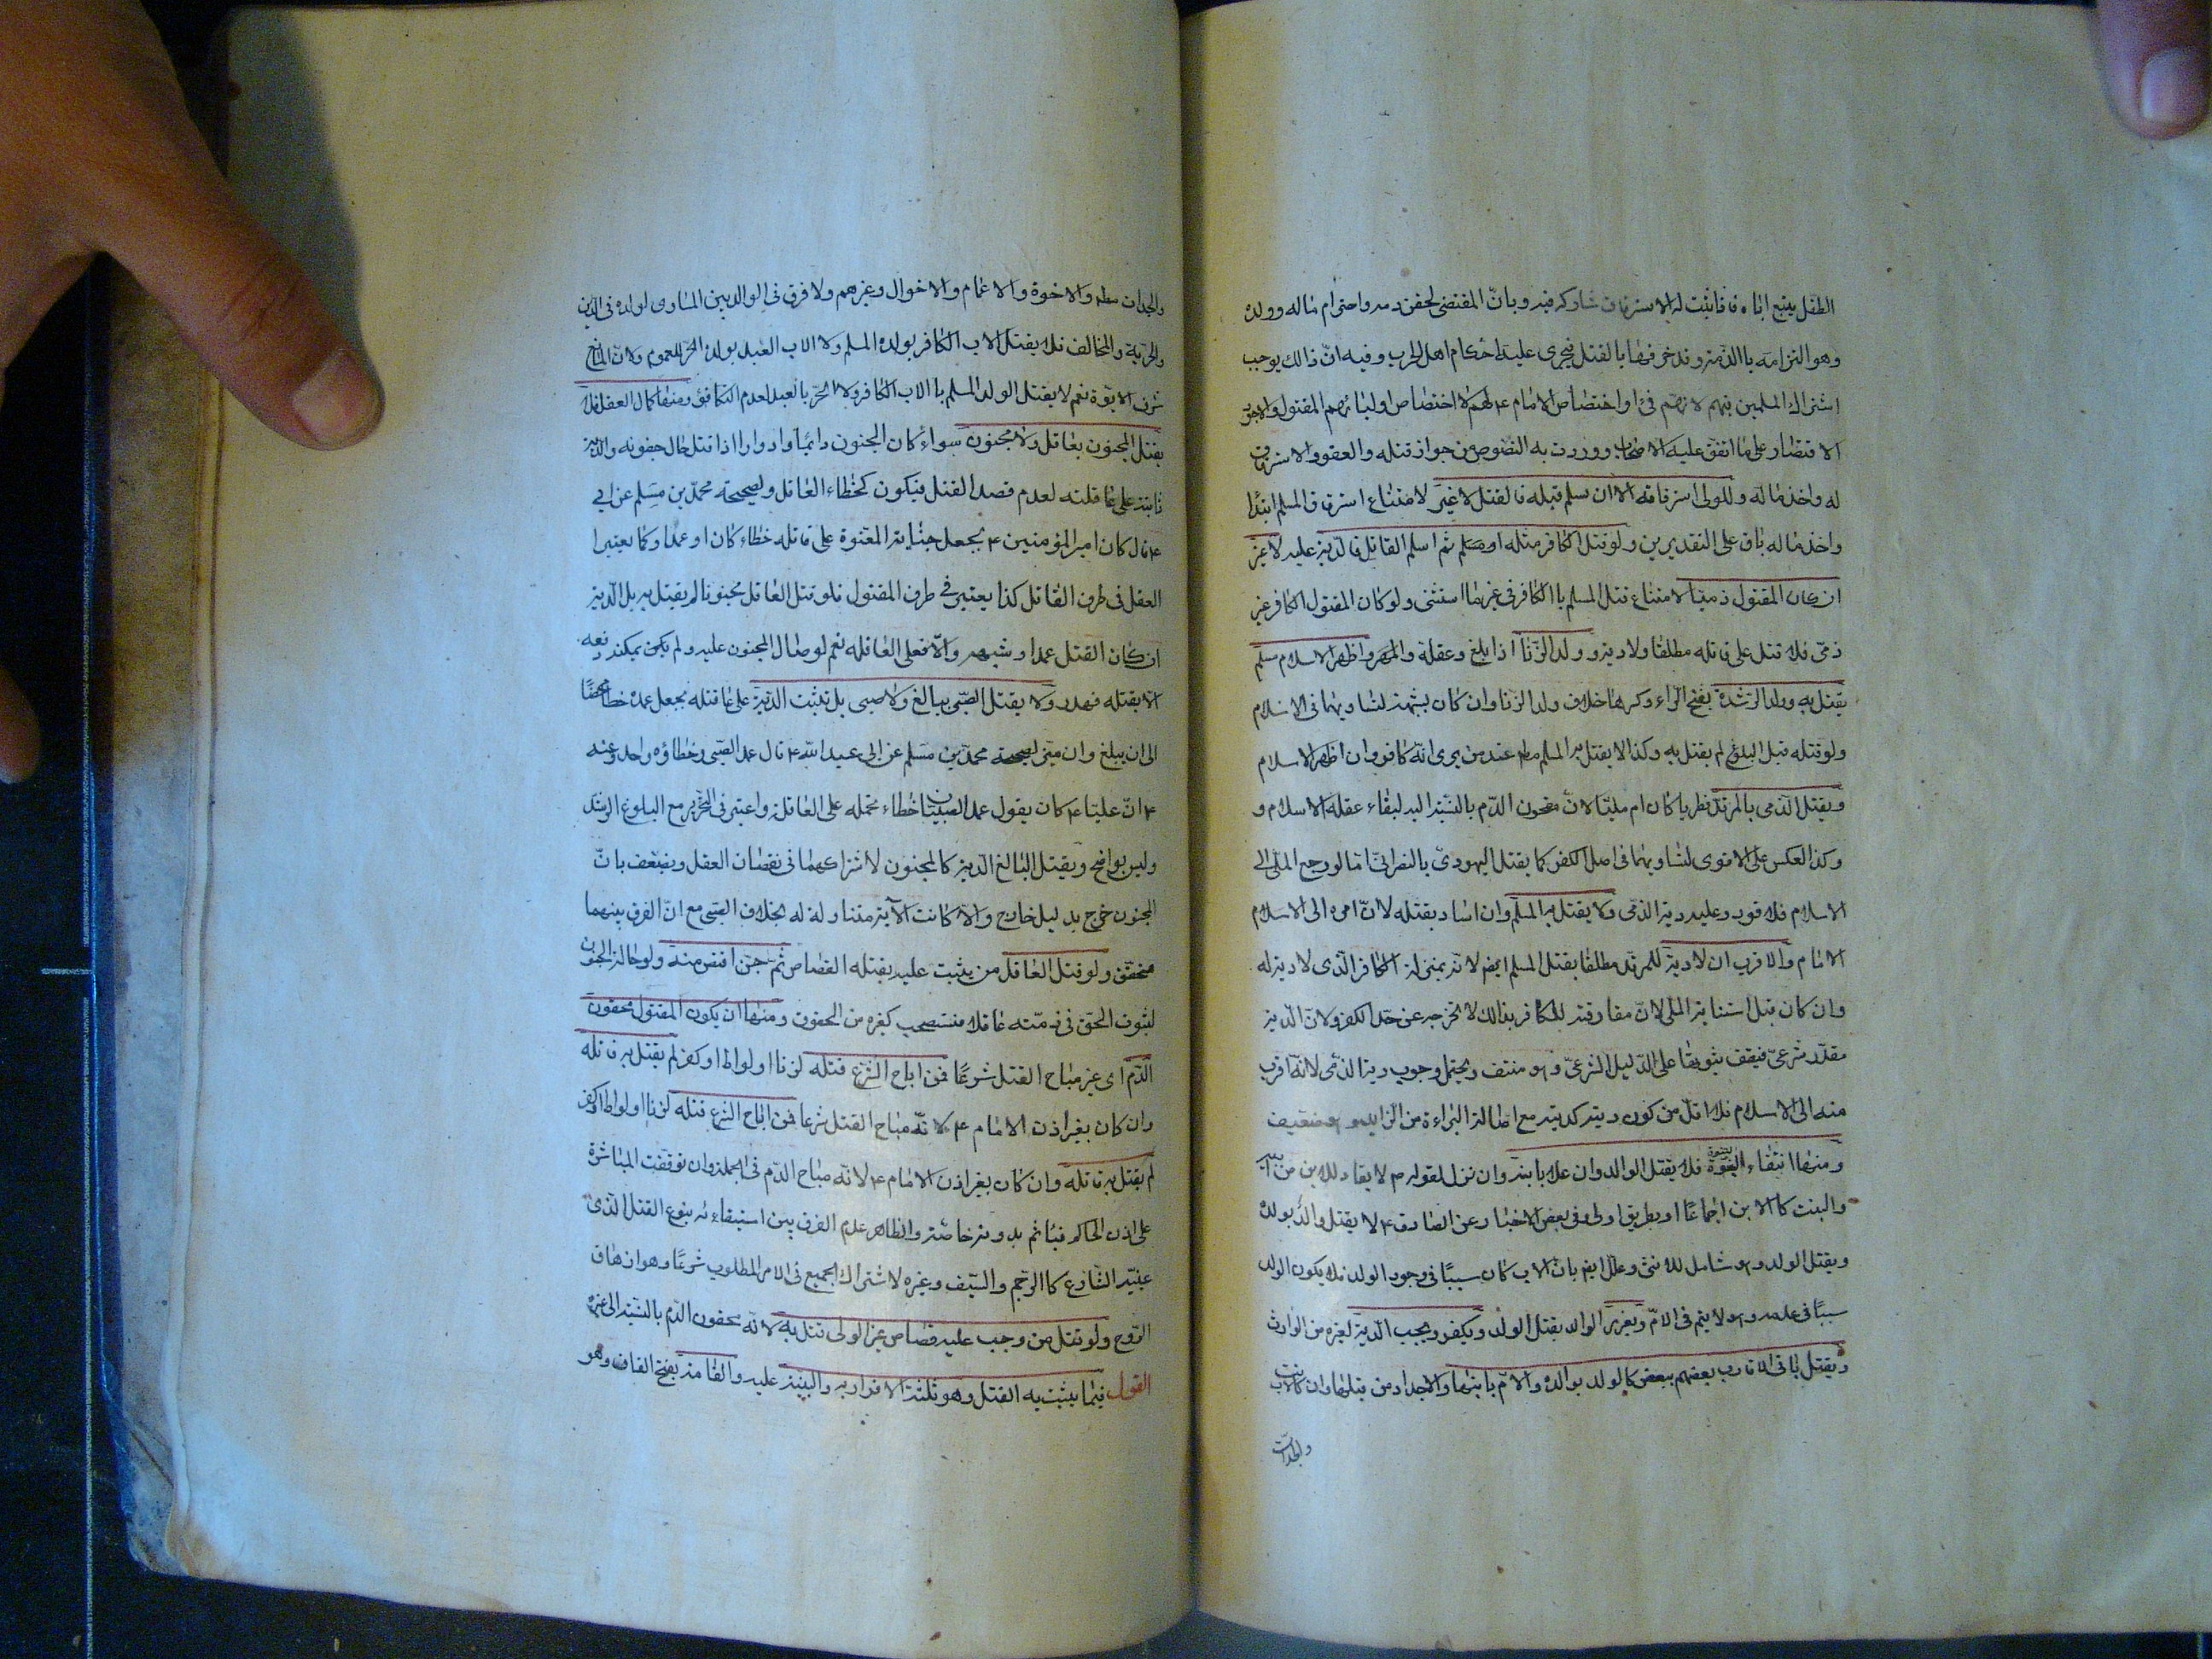 الطفل يتبع اباه فاذا ثبت له الاسترقاق شاركه فيه وبانّ المقتضى لحقن دمه واحترام ماله وولده
وهو التزامه باالذمة وقد خرقها بالقتل فيجرى عليه احكام اهل الحرب وفيه انّ ذالك يوجب
اشتراك المسلمين فيهم لانهم فئ او اختصاص الامام ۴ بهم لا اختصاص اولياء المقتول والاجود
الاقتصار على ما اتفق عليه الاصحاب ووردت به النصوص من جواز قتله والعفو والاسترقاق
له واخذ ماله وللولى استرقاقه الا ان يسلم قبله فالقتل لا غير لامتناع استرقاق المسلم ابتداء
واخذ ماله باق على التقديرين ولو قتل الكافر مثله او مسلم ثم اسلم القاتل فالدية عليه لا غير
ان كان المقتول ذميا لامتناع قتل المسلم باالكافر فى غير ما استثنى ولو كان المقتول الكافر غير
ذمى فلا قتل على قاتله مطلقا ولا دية وولد الزنا اذا بلغ وعقل واظهر الاسلام مسلم
يقتل به وولد الرشدة بفتح الراء وكسرها خلاف ولد الزنا وان كان لشبهة لتساويهما فى الاسلام
ولو قتله قبل البلوغ لم يقتل به وكذا لا يقتل به المسلم مطم عند من يرى انّه كافر وان اظهر الاسلام
ويقتل الذمى بالمرتد فطريا كان ام مليّا لانّ محقون الدّم بالنسبة اليه لبقاء علقة الاسلام و
وكذا العكس على الاقوى لتساويهما فى اصل الكفر كما يقتل اليهودى بالنصرانى امّا لو رجع الملّى الى
الاسلام فلا قود وعليه دية الذمى ولا يقتل به المسلم وان اساء بقتله لانّ امره الى الاسلام
الامام والاقرب ان لا دية للمرتد مطلقا بقتل المسلم ايضا لانه بمنزلة الكافر الّذى لا دية له
وان كان قبل استتابة الملّى لانّ مفارقته للكافر بذالك لا تخرجه عن حد الكفر ولانّ الدّية
مقدّر شرعىّ فيقف ثبوتها على الدّليل الشرعىّ وهو منتف ويحتمل وجوب دية الذمّى لانّه اقرب
منه الى الاسلام فلا اقلّ من كون ديته كديته مع اصالة البراءة من الزائد وهو ضعيف
ومنها انتفاء الابوّة فلا يقتل الوالد وان علا بابنه وان نزل لقوله ص لا يقاد للابن من ابيه
والبنت كاالابن اجماعًا او بطريق اولى وفى بعض الاخبار عن الصادق ۴ لا يقتل والد بولده
ويقتل الولد وهو شامل للانثى وعلّل ايضا بانّ الاب كان سببًا فى وجود الولد فلا يكون الولد
سببًا فى عدمه وهو لا يتم فى الامّ ويعزر الوالد بقتل الولد ويكفر ويجب الّدية لغيره من الوارث
ويقتل باقى الاقارب بعضهم ببعض كالولد بوالده والامّ بابنها والاجداد من قبلها وان كانت
والجدّات
والجدات مطم والاخوة والاعمام والاخوال وغيرهم ولا فرق فى الوالد بين المساوى لولده فى الدّين
والحرّية والمخالف فلا يقتل الاب الكافر بولده المسلم ولا الاب العبد بولده الحرّ للعموم ولانّ المانع
شرف الابوّة نعم لا يقتل الولد المسلم باالاب الكافر ولا الحرّ بالعبد لعدم التكافؤ ومنها كمال العقل فلا
يقتل المجنون بعاقل ولا مجنون سواء كان الجنون دائمًا او ادوارا اذا قتل حال جنونه والدّية
ثابتة على عاقلته لعدم قصد القتل فيكون كخطاء العاقل ولصحيحة محمّد بن مسلم عن ابى
۴ قال كان امير المؤمنين ۴ يجعل جناية المعتوه على عاقلته خطاء كان او عمدا وكما يعتبر
العقل فى طرف القاتل كذا يعتبر فى طرف المقتول فلو قتل العاقل مجنونا لم يقتل به بل الّدية
ان كان القتل عمدا او شبهه والّا فعلى العاقلة نعم لو صال المجنون عليه ولم يمكنه دفعه
الا بقتله فهدر ولا يقتل الصّبى ببالغ ولا صبى بل تثبت الدّية على عاقلته بجعل عمده خطأ محضًا
الى ان يبلغ وان ميّز لصحيحة محمّد بن مسلم عن ابى عبد اللّه ۴ قال عمد الصّبى وخطاؤه واحد وعنه
۴ انّ عليّا ۴ كان يقول عمد الصبيان خطاء تحمله على العاقلة واعتبر فى التحرير مع البلوغ الرشد
وليس بواضح ويقتل البالغ الّدية كالمجنون لاشتراكهما فى نقصان العقل ويضعّف بانّ
المجنون خرج بدليل خارج والّا كانت الآية متناولة له بخلاف الصّبى مع انّ الفرق بينهما
متحقّق ولو قتل العاقل من يثبت عليه بقتله القصاص ثم جنّ اقتص منه ولو حالة الجنون
لثبوت الحقّ فى ذمّته عاقلا فيستصحب كغيره من الحقوق ومنها ان يكون المقتول محقون
الدّم اى غير مباح القتل شرعًا فمن اباح الشرع قتله لزنا او لواط او كفر لم يقتل به قاتله
وان كان بغير اذن الامام ۴ لانّه مباح القتل شرعا فمن اباح الشرع قتله لزنا او لواط او كفر
لم يقتل به قاتله وان كان بغير اذن الامام ۴ لانّه مباح الدّم فى الجملة وان توقفت المباشرة
على اذن الحاكم فيأثم بدونه خاصّة والظاهر عدم الفرق بين استيفائه بنوع القتل الّذى
عيّنه الشارع كاالرّجم والسّيف وغيره لاشتراك الجميع فى الامر المطلوب شرعًا وهو ازهاق
الرّوح ولو قتل من وجب عليه قصاص غير الولى قتل به لانّه محقون الدّم بالنسبة الى غيره
القول فيما يثبت به القتل وهو ثلثة الاقرار به والبيّنة عليه والقسامة بفتح القاف وهو